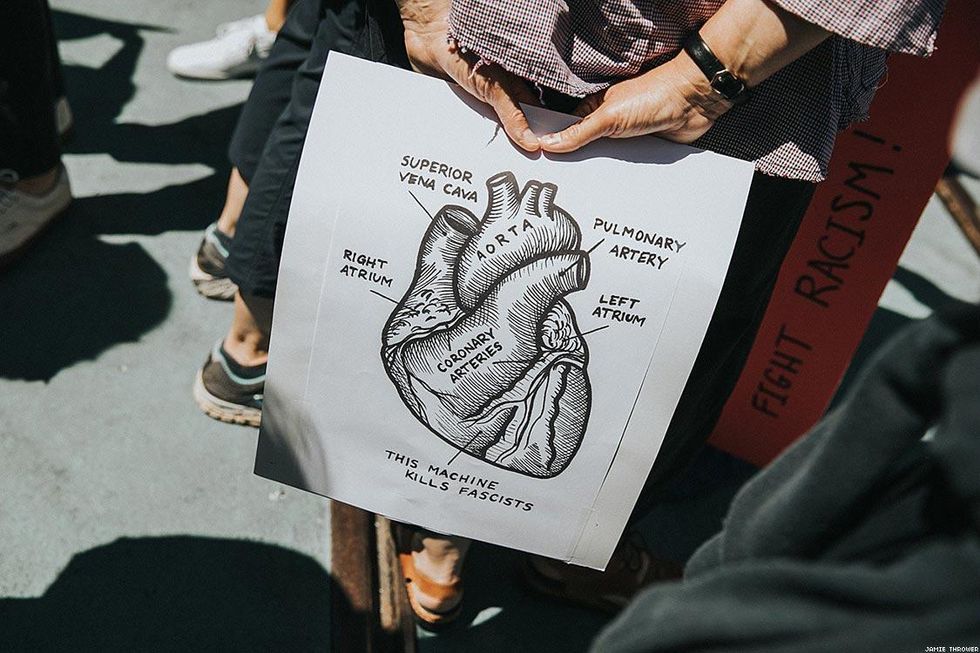 SUPERIOR
VENA CAVA
AORTA
PULMONARY
ARTERY
RIGHT
ATRIUM
LEFT
ATRIUM
CORONARY
ARTERIES
THIS MACHINE
KILLS FASCISTS
FIGHT RACISM!
JAMIE THROWER